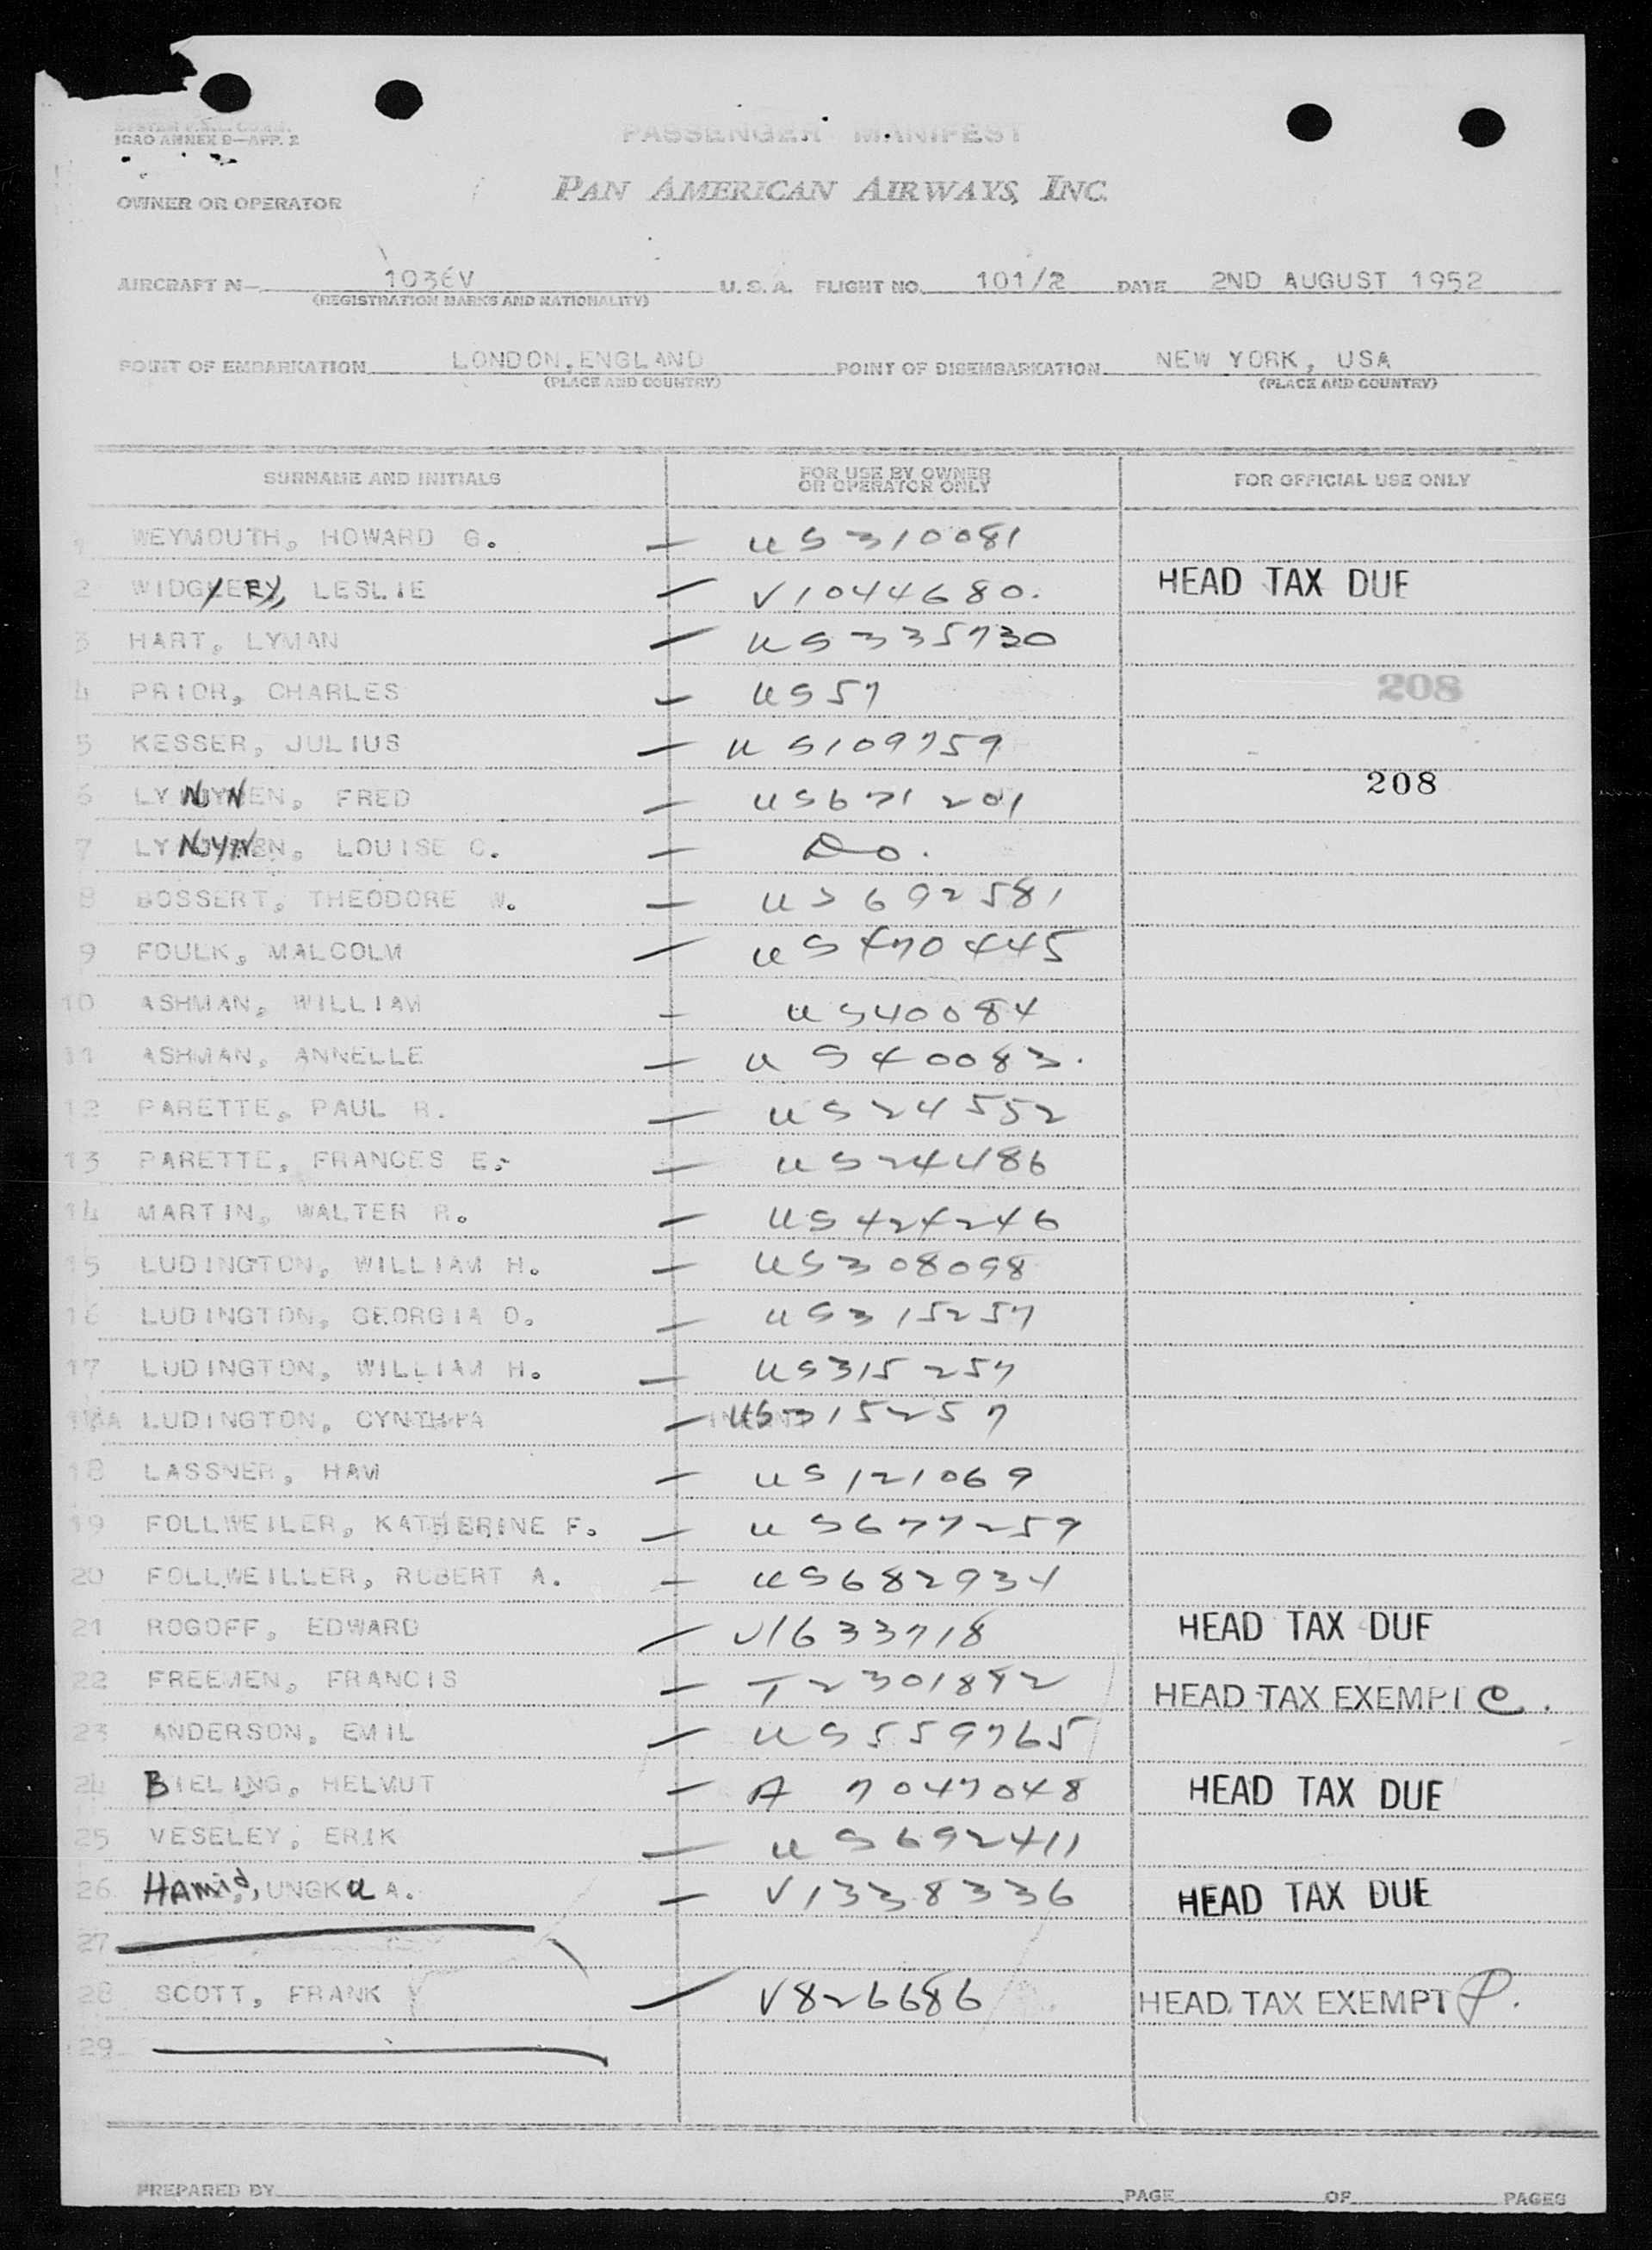 ICAO ANNEX 9—APP. 2
PASSENGER MANIFEST
OWNER OR OPERATOR PAN AMERICAN AIRWAYS, INC.
AIRCRAFT N— 1036V U. S. A. FLIGHT NO. 101/2 DATE 2ND AUGUST 1952
(REGISTRATION MARKS AND NATIONALITY)
POINT OF EMBARKATION LONDON, ENGLAND POINT OF DISEMBARKATION NEW YORK, USA
(PLACE AND COUNTRY) (PLACE AND COUNTRY)
SURNAME AND INITIALS FOR USE BY OWNER OR OPERATOR ONLY FOR OFFICIAL USE ONLY
1 WEYMOUTH, HOWARD G. — US310081
2 WIDGERY, LESLIE — V1044680. HEAD TAX DUE
3 HART, LYMAN — US335730
4 PRIOR, CHARLES — US57 208
5 KESSER, JULIUS — US109759
6 LYNNEN, FRED — US671201 208
7 LYNYNEN, LOUISE C. — Do.
8 BOSSERT, THEODORE W. — US692581
9 FOULK, MALCOLM — US470445
10 ASHMAN, WILLIAM — US40084
11 ASHMAN, ANNELLE — US40083.
12 PARETTE, PAUL R. — US24552
13 PARETTE, FRANCES E. — US24486
14 MARTIN, WALTER R. — US424246
15 LUDINGTON, WILLIAM H. — US308098
16 LUDINGTON, GEORGIA O. — US315257
17 LUDINGTON, WILLIAM H. — US315257
LUDINGTON, CYNTHIA — US315257
18 LASSNER, HAM — US121069
19 FOLLWEILER, KATHERINE F. — US677259
20 FOLLWEILLER, ROBERT A. — US682934
21 ROGOFF, EDWARD — V1633718 HEAD TAX DUE
22 FREEMEN, FRANCIS — T2301892 HEAD TAX EXEMPT C.
23 ANDERSON, EMIL — US559765
24 BIELING, HELMUT — A 7047048 HEAD TAX DUE
25 VESELEY, ERIK — US692411
26 Hamid, UNGKU A. — V1338336 HEAD TAX DUE
27
28 SCOTT, FRANK Y — V826686 HEAD TAX EXEMPT P.
29
PREPARED BY PAGE OF PAGES